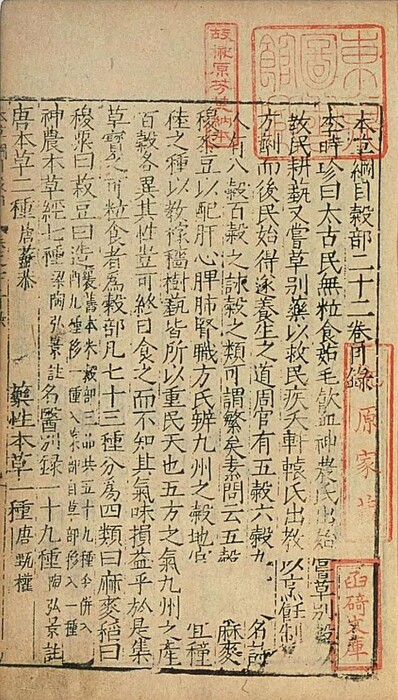 本草綱目穀部二十二卷目錄
李時珍曰太古民無粒食茹毛飲血神農氏出始嘗草別穀
教民耕蓺又嘗草別藥以救民疾夭軒轅氏出教以烹飪制
方劑而後民始得遂養生之道周官有五穀六穀九名詩
人有八穀百穀之詠穀之類可謂繁矣素問云五穀麻麥
稷黍豆以配肝心脾肺腎職方氏辨九州之穀地官種
稑之種以教稼穡樹蓺皆所以重民天也五方之氣九州之產
百穀各異其性豈可終日食之而不知其氣味損益乎於是集
草實之可粒食者為穀部凡七十三種分為四類曰麻麥稻曰
稷粟曰菽豆曰造釀
舊本米穀部三品共五十九種今併入
九種移一種入菜部自草部移入一種
神農本草經七種 梁陶弘景註 名醫別錄一十九種 陶弘景註
唐本草二種 唐蘇恭 藥性本草一種 唐甄權
故榊原芳埜納本
東
圖書
館
原家
文庫